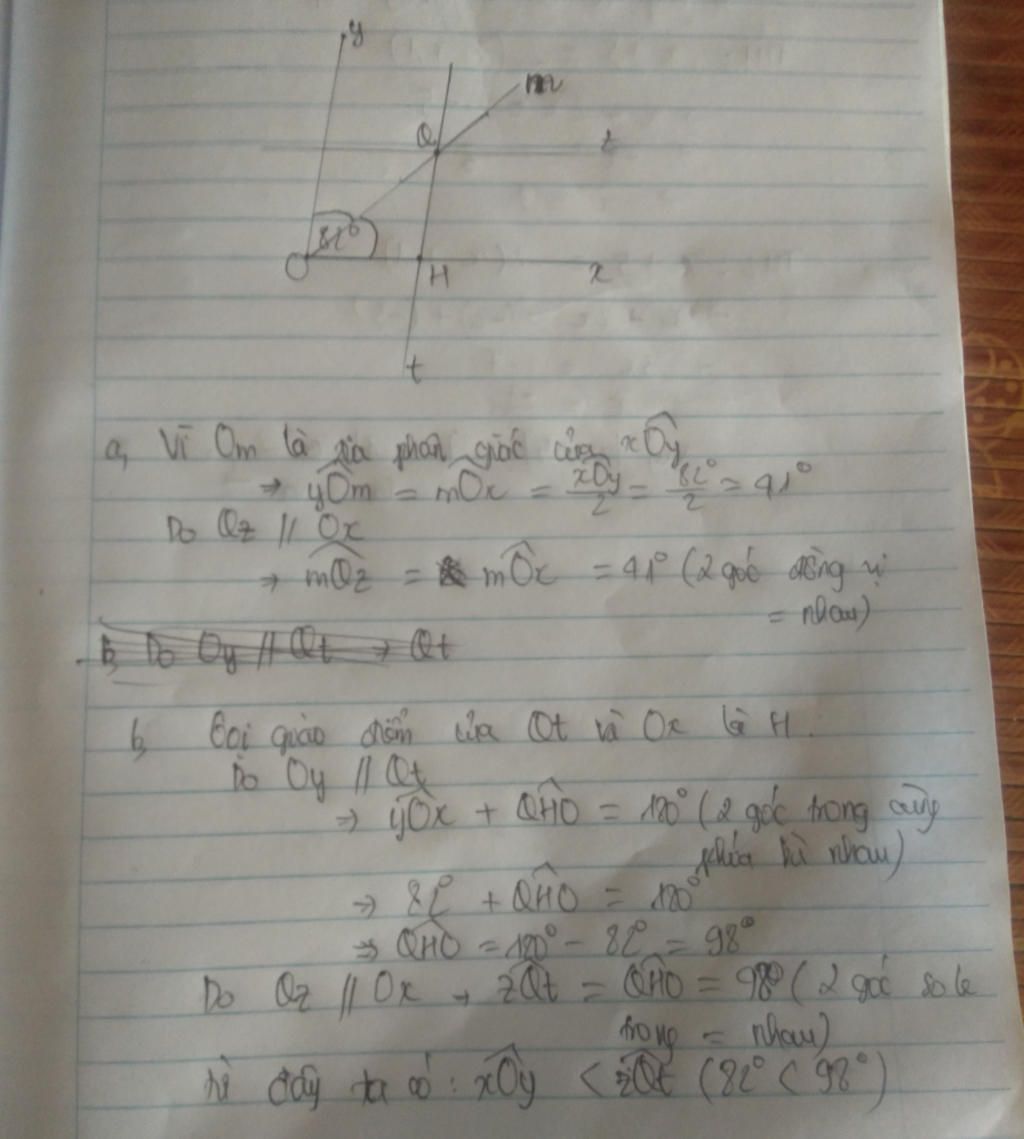 y
m
Q
z
82°
O
H
x
t
a, Vì Om là tia phân giác của xOy
→ yOm = mOx = xOy/2 = 82°/2 = 41°
Do Qz // Ox
→ mQz = mOx = 41° (2 góc đồng vị
= nhau)
b, Do Oy // Qt → Qt
b, Gọi giao điểm của Qt và Ox là H.
Do Oy // Qt
→ yOx + QHO = 180° (2 góc trong cùng
phía bù nhau)
→ 82° + QHO = 180°
→ QHO = 180° - 82° = 98°
Do Qz // Ox → zQt = QHO = 98° (2 góc so le
trong = nhau)
từ đây ta có: xOy < zQt (82° < 98°)